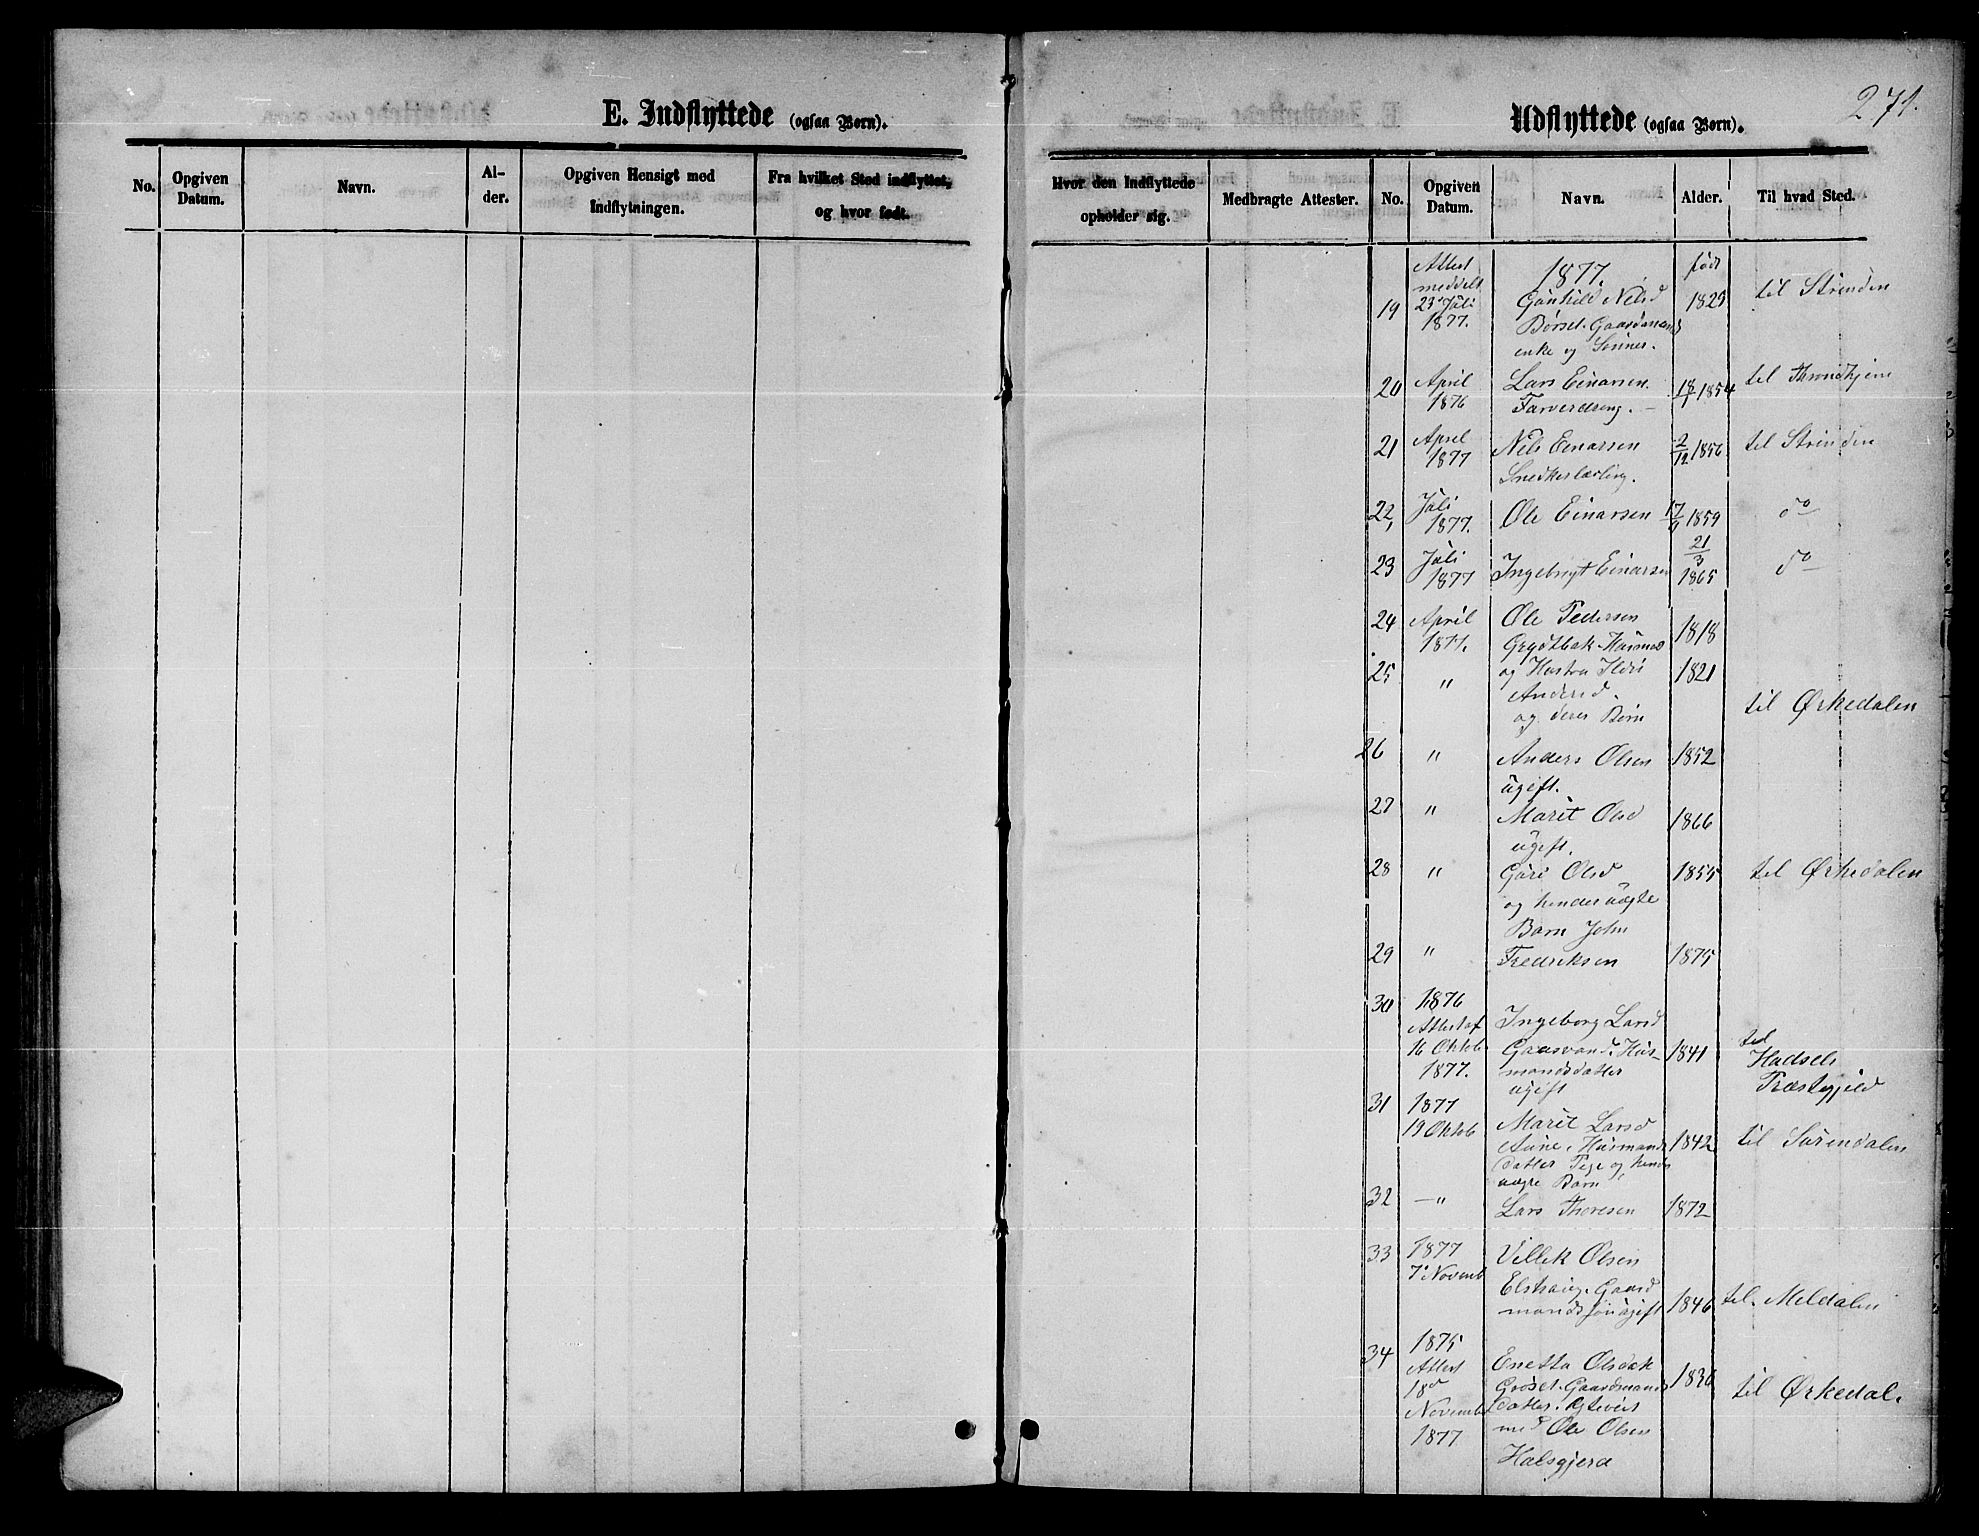 E. Indflyttede (ogsaa Børn).
No.
Opgiven Datum.
Navn.
Al-
der.
Opgiven Hensigt med
Indflytningen.
Fra hvilket Sted indflyttet,
og hvor født.
Udflyttede (ogsaa Børn).
271.
Hvor den Indflyttede
opholder sig.
Medbragte Attester.
No.
Opgiven Datum.
Navn.
Alder.
Til hvad Sted.
Attest
meddelt
23 Juli
1877.
1877.
født
19
Gunhild Nilsd
Børset. Gaardmands
enke og Sønner.
1825
til Strinden
20
April
1876
Lars Einarsen
Farverdreng.
18/1 1854
til Throndhjem
21
April
1877
Nils Einarsen
Snedkerlærling.
2/12 1856
til Strinden
22
Juli
1877.
Ole Einarsen
1859
do
23
Juli
1877
Ingebrigt Einarsen
21/3
1865
do
24
April
1877.
Ole Pedersen
Grydtbak. Husmd
1818
25
"
og Hustru Ildri
Andersd.
og deres Børn
1821
til Ørkedalen
26
"
Anders Olsen
ugift.
1852
27
"
Marit Olsd
ugift.
1866
28
"
Guri Olsd
og hendes uægte
Barn John
1855
til Ørkedalen
29
"
Fredriksen
1875
30
1876
Attest af
16 Oktob
1877.
Ingeborg Larsd
Gaasvand. Hus-
mandsdatter
ugift
1841
til
Hadsels
Præstegjeld
31
1877
19 Oktob
Marit Larsd
Aune. Husmands
datter Pige og hends
uægte Barn
1842
til Surendalen
32
— "
Lars Thoresen
1872
33
1877
7 Novemb
Villik Olsen
Elshaug. Gaard
mands søn ugift
1846
til. Meldalen
34
1875
Attest
18d
Novemb
1877
Enetta Olsd
Grøset. Gaardmands
Datter.
med Ole Olsen
Halsgjerd
1836
til Ørkedal.